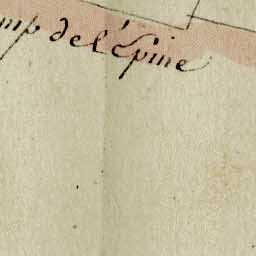 mp de l'Epine